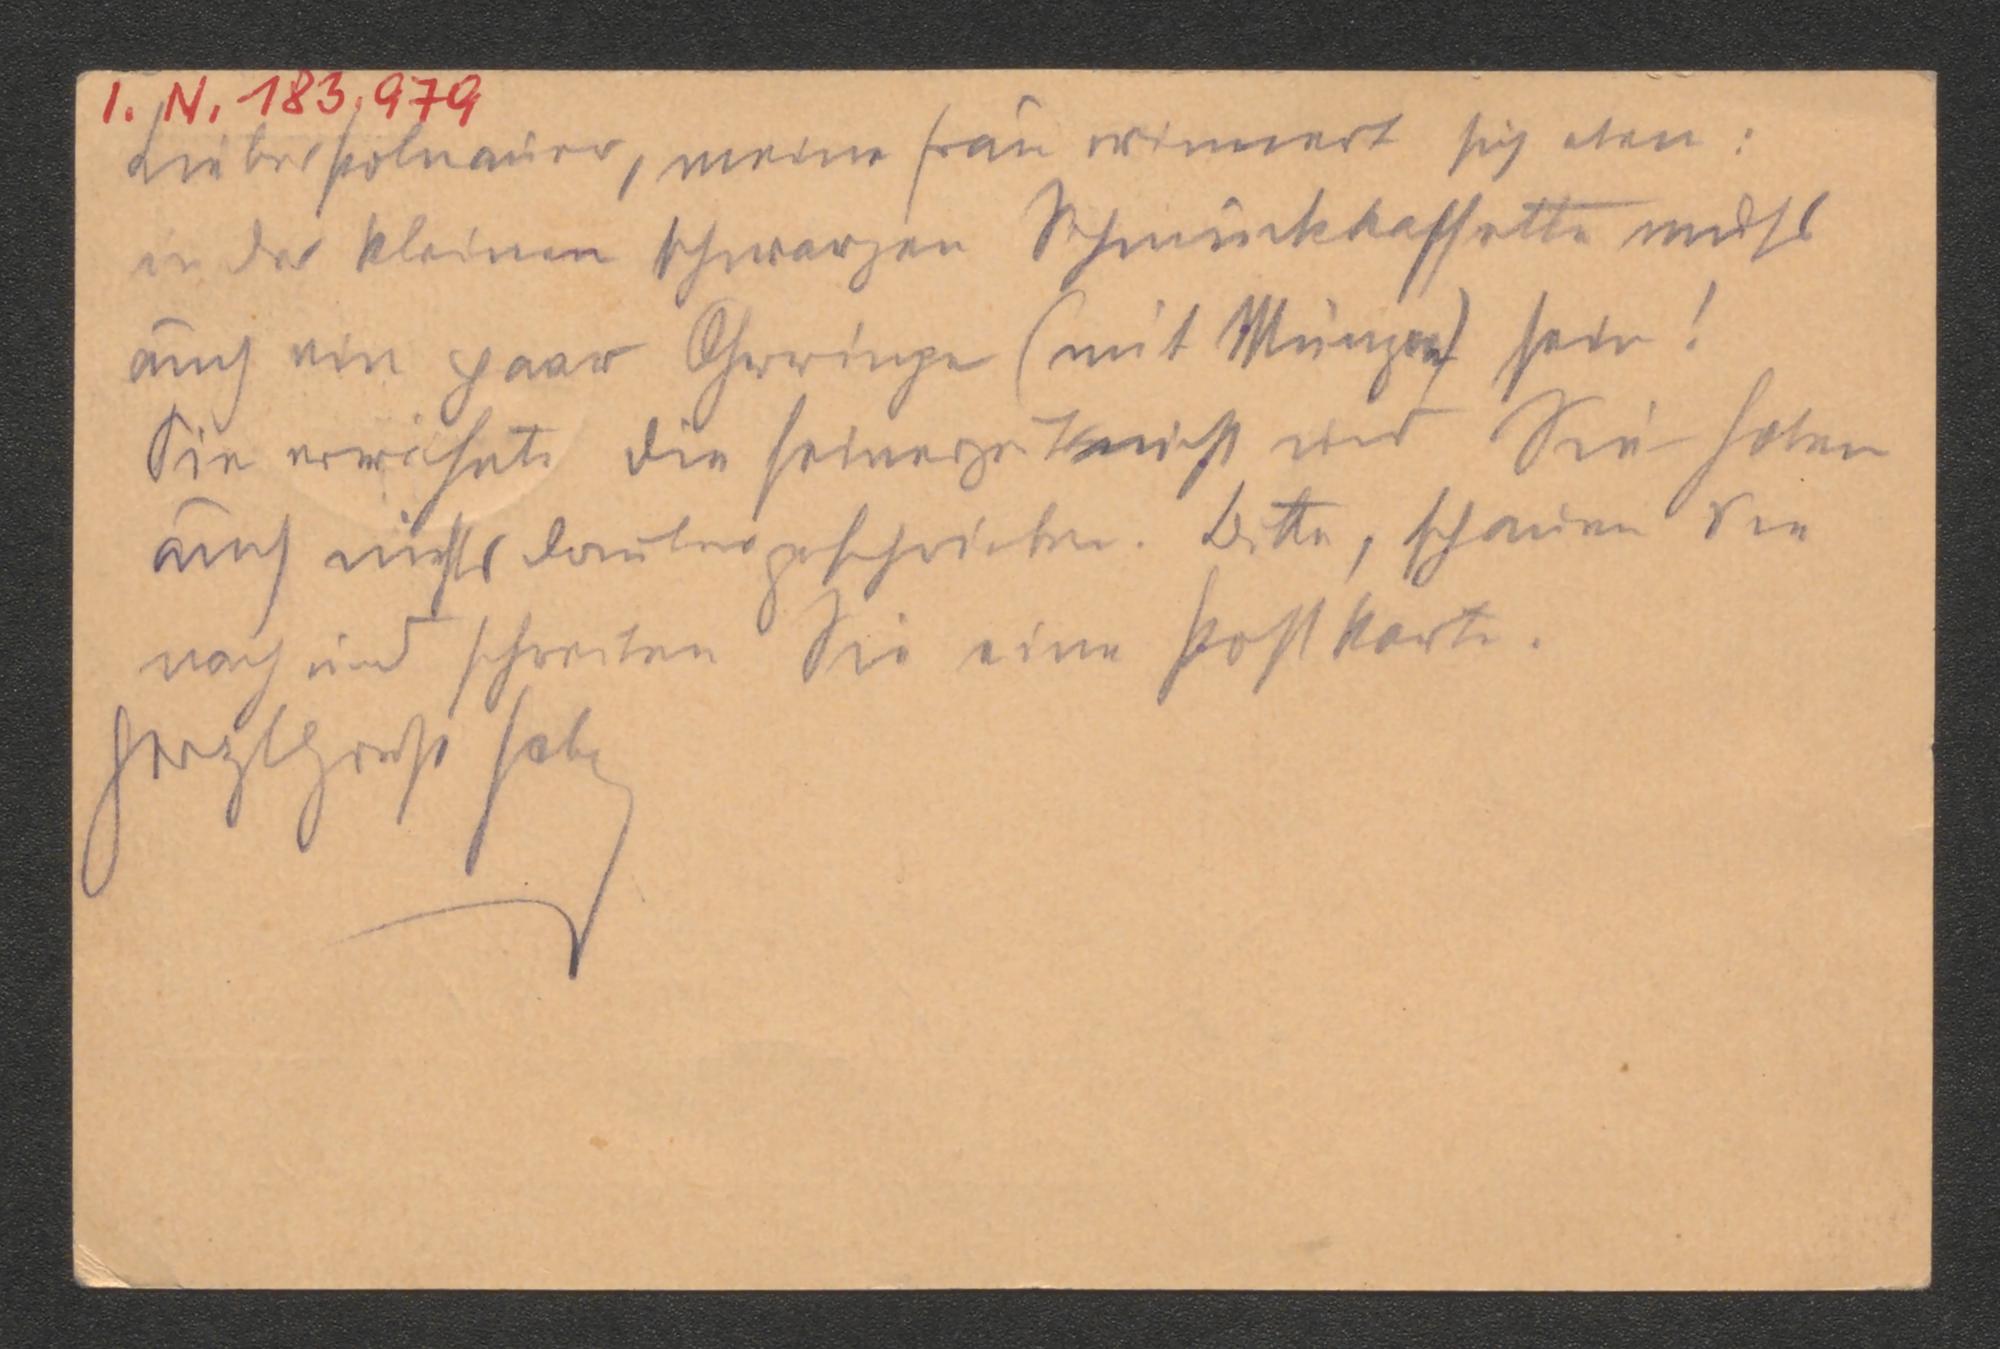 I. N. 183.979
Lieber Polnauer, meine Frau erinnert sich eben:
in der kleinen schwarzen Schmuckkassette muss
auch ein paar Ohrringe (mit Münzen) sein!
Sie erwähnte die seinerzeit nicht und Sie haben
auch nichts darüber geschrieben. Bitte, schauen Sie
nach und schreiben Sie eine Postkarte.
Herzl Gruß